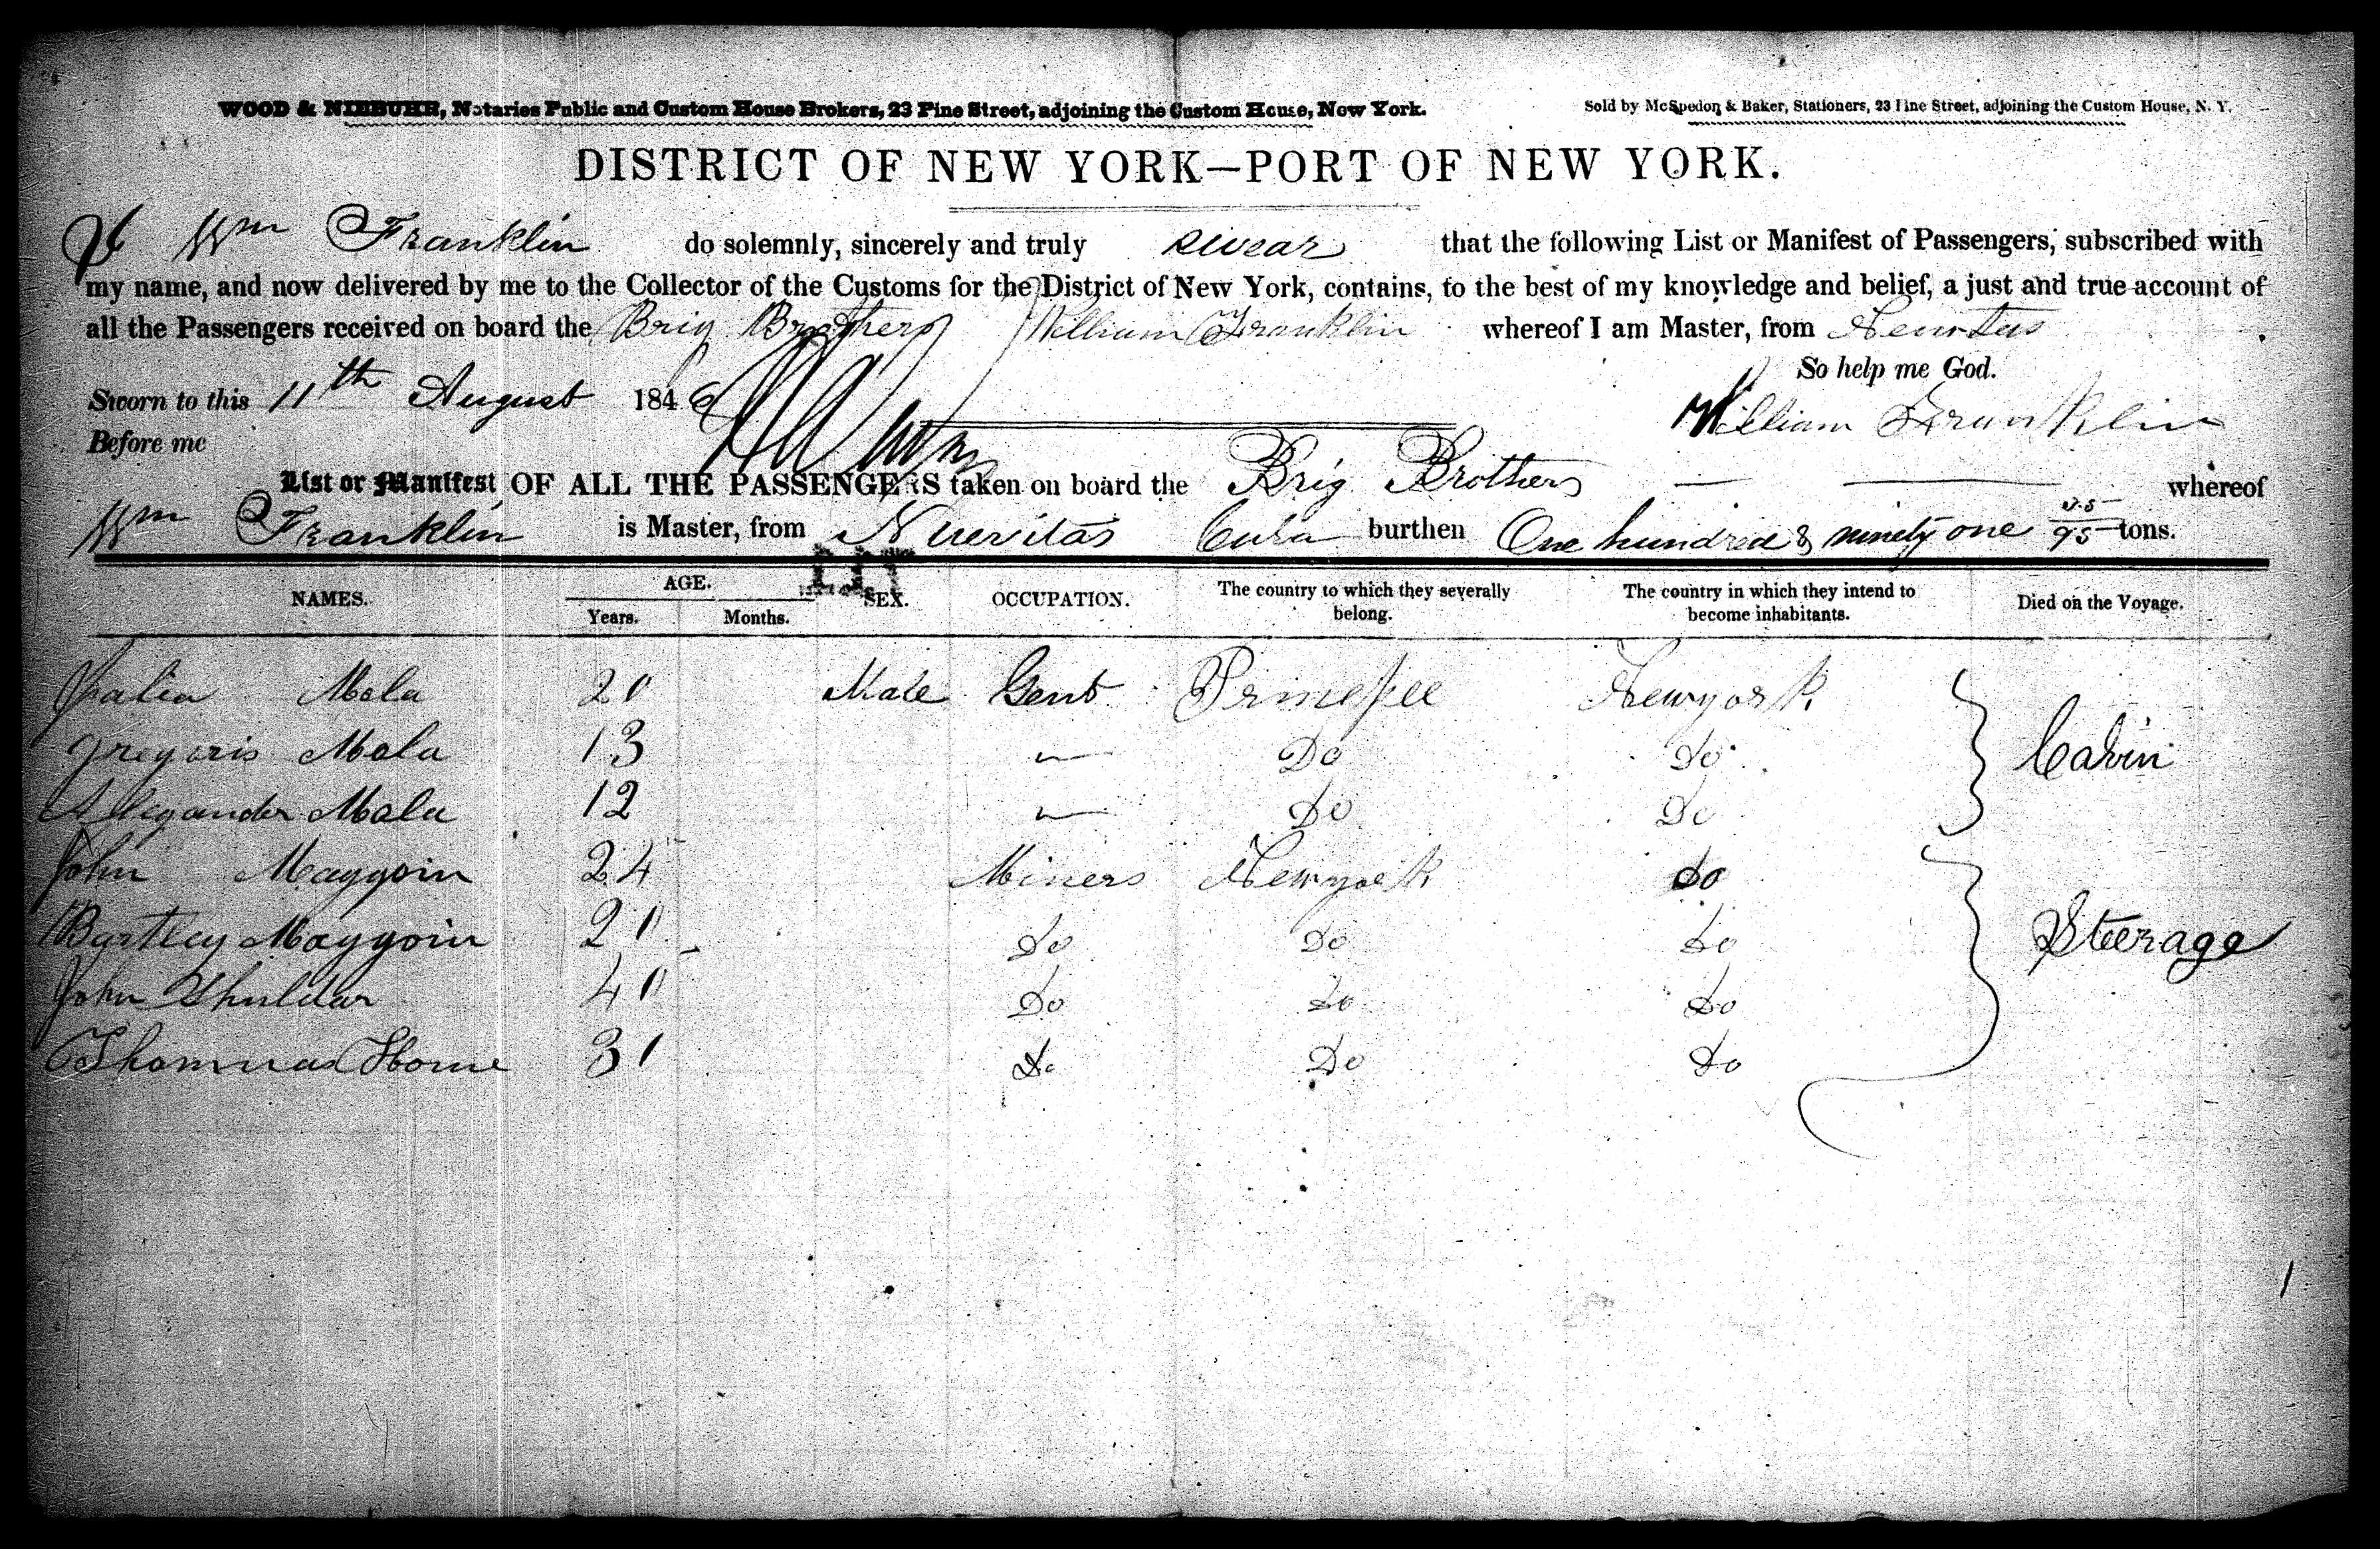 WOOD & NIEBUHR, Notaries Public and Custom House Brokers, 23 Pine Street, adjoining the Custom House, New York. Sold by McSpedon & Baker, Stationers, 23 Pine Street, adjoining the Custom House, N. Y.
DISTRICT OF NEW YORK—PORT OF NEW YORK.
I Wm Franklin do solemnly, sincerely and truly swear that the following List or Manifest of Passengers, subscribed with
my name, and now delivered by me to the Collector of the Customs for the District of New York, contains, to the best of my knowledge and belief, a just and true account of
all the Passengers received on board the Brig Brothers William Franklin whereof I am Master, from
So help me God.
Sworn to this 11th August 1846 William Franklin
Before me
List or Manifest OF ALL THE PASSENGERS taken on board the Brig Brothers whereof
Wm Franklin is Master, from Nuevitas Cuba burthen One hundred & ninety one /95 tons.
NAMES. AGE. SEX. OCCUPATION. The country to which they severally belong. The country in which they intend to become inhabitants. Died on the Voyage.
Years. Months.
Mola 20 Male Gent Newyork
Gregoris Mola 13 Do Do Cabin
Mola 12 Do Do
John Maggoin 24 Miners Newyork Do
Bartley Maggoin 20 Do Do Do Steerage
John 40 Do Do Do
Thomas Horne 31 Do Do Do